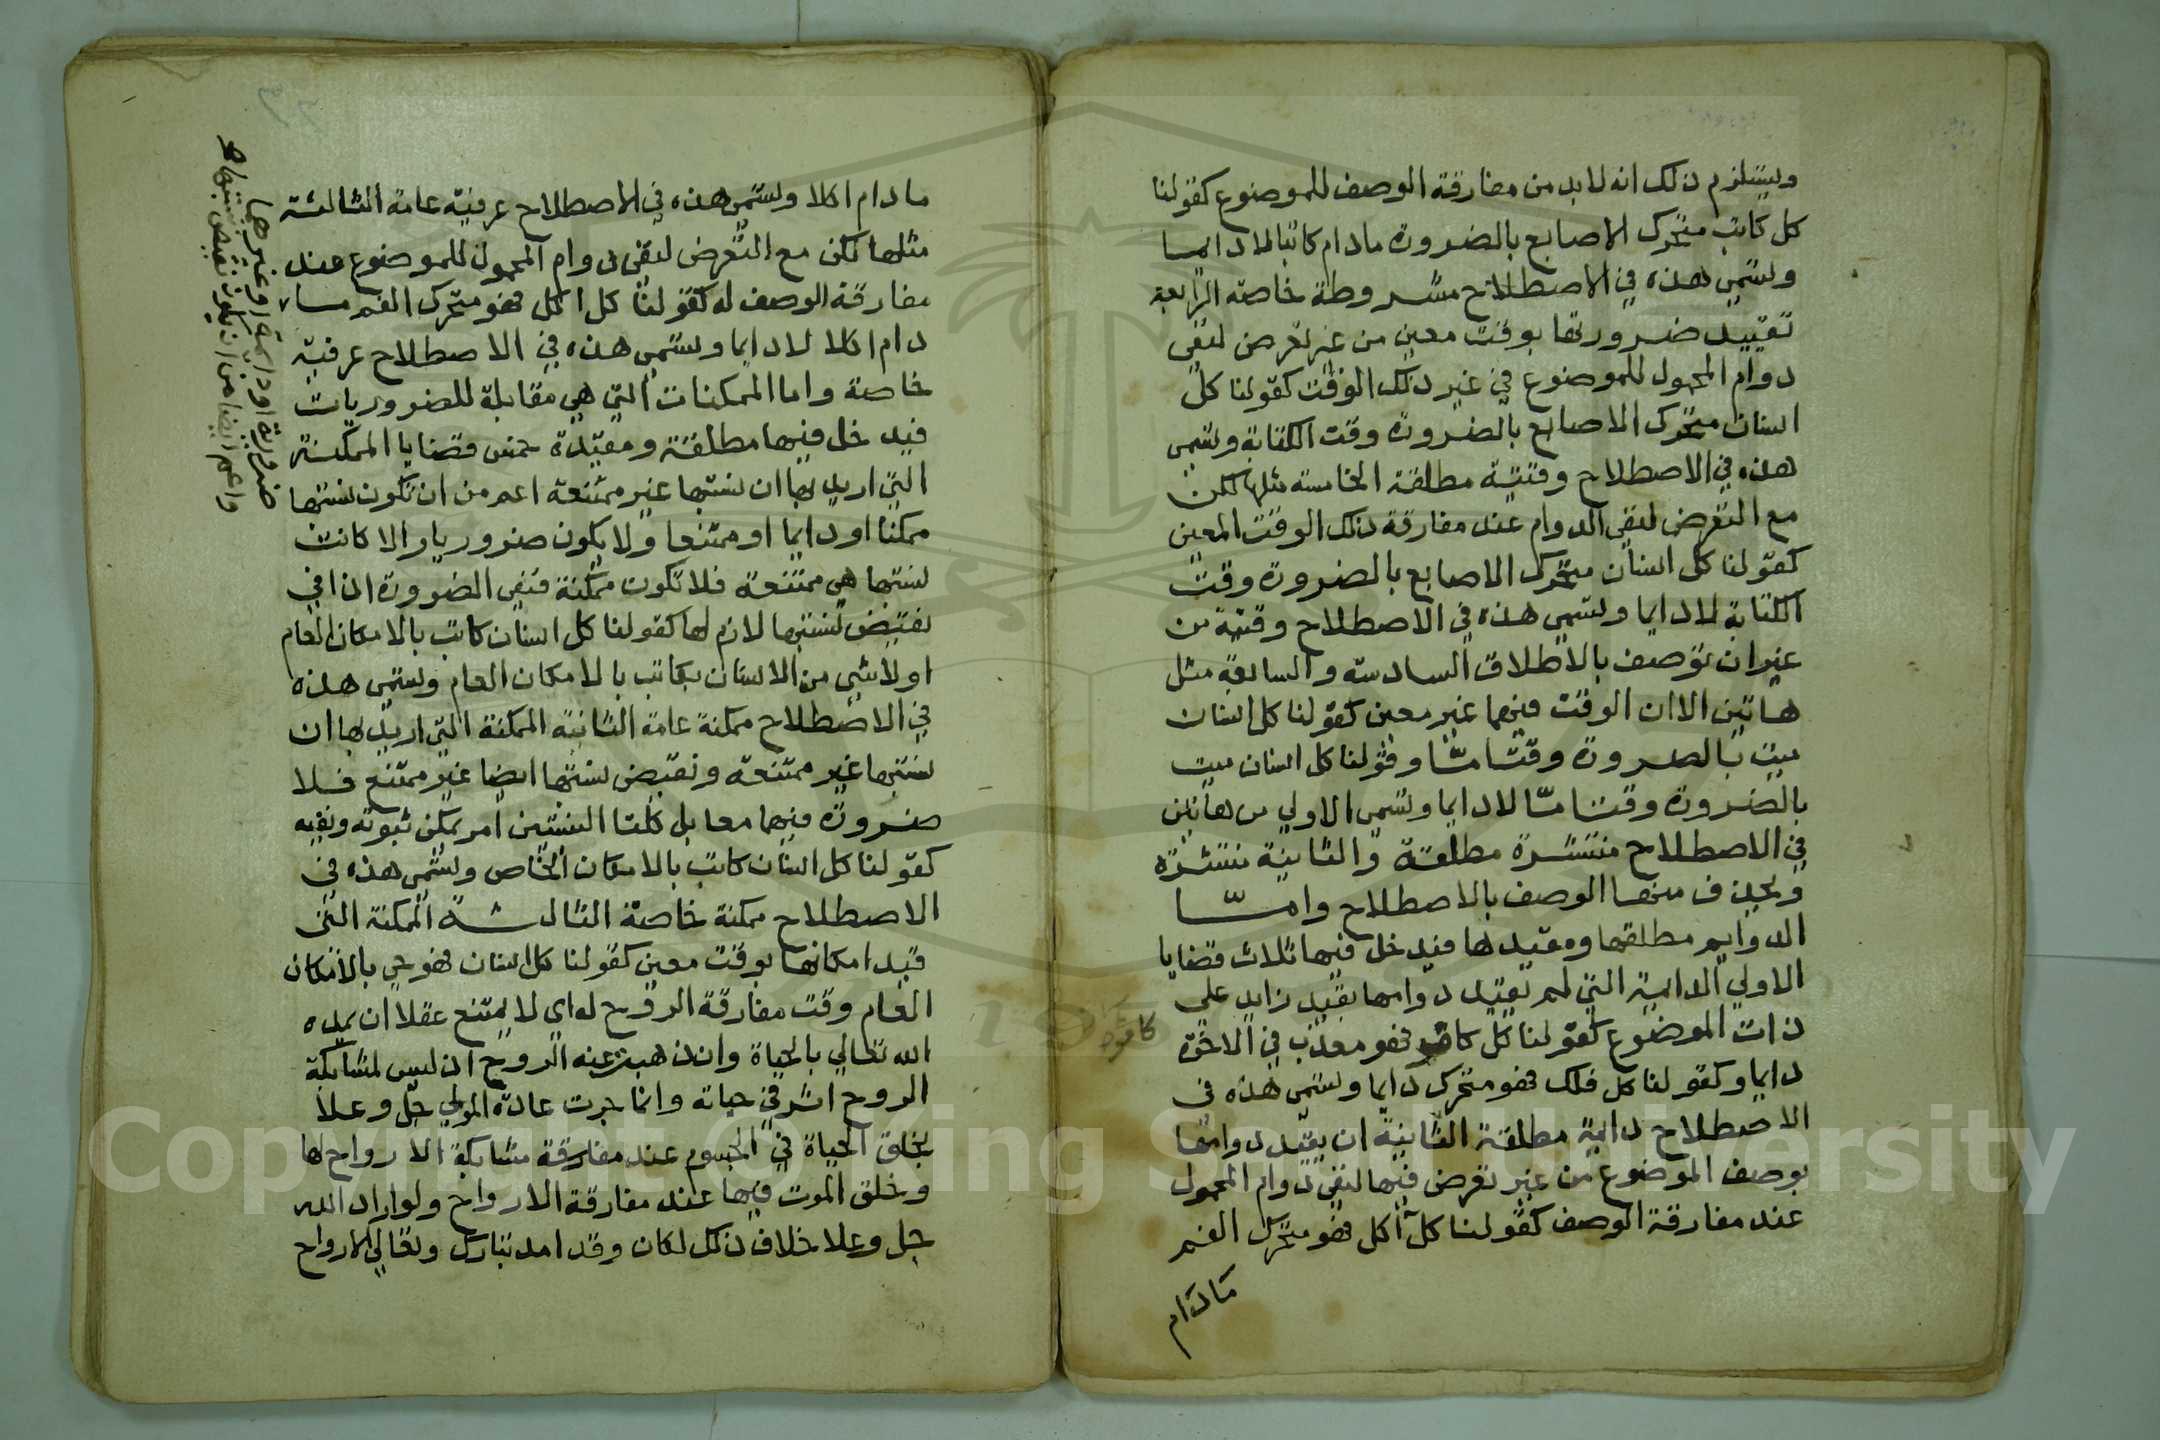 ويستلزم ذلك انه لابد من مفارقة الوصف للموضوع كقولنا
كل كاتب متحرك الاصابع بالضرورة مادام كاتبا لا دايما
وتسمي هذه في الاصطلاح مشروطة خاصة الرابعة
تقييد ضرورتها بوقت معين من غير تعرض لنفي
دوام المحمول للموضوع في غير ذلك الوقت كقولنا كل
انسان متحرك الاصابع بالضرورة وقت الكتابة وتسمي
هذه في الاصطلاح وقتية مطلقة الخامسة مثلها لكن
مع التعرض لنفي الدوام عند مفارقة ذلك الوقت المعين
كقولنا كل انسان متحرك الاصابع بالضرورة وقت
الكتابة لا دايما وتسمي هذه في الاصطلاح وقتية من
غير ان توصف بالاطلاق السادسة والسابعة مثل
هاتين الا ان الوقت فيهما غير معين كقولنا كل انسان
ميت بالضرورة وقتا مّا وقولنا كل انسان ميت
بالضرورة وقتا مّا لا دايما وتسمي الاولي من هاتين
في الاصطلاح منتشرة مطلقة والثانية منتشرة
ويحذف منها الوصف بالاصطلاح وامّا
الدوايم مطلقها ومقيدها فيدخل فيها ثلاث قضايا
الاولي الدايمة التي لم يقيد دوامها بقيد زايد علي
ذات الموضوع كقولنا كل كافر فهو معذب في الاخرة
كافر
دايما وكقولنا كل فلك فهو متحرك دايما وتسمي هذه في
الاصطلاح دايمة مطلقة الثانية ان يقيد دوامها
بوصف الموضوع من غير تعرض فيها لنفي دوام المحمول
عند مفارقة الوصف كقولنا كل آكل فهو متحرك الفم
مادام
مادام اكلا وتسمي هذه في الاصطلاح عرفية عامة الثالثة
مثلها لكن مع التعرض لنفي دوام المحمول للموضوع عند
مفارقة الوصف له كقولنا كل اكل فهو متحرك الفم ما
دام اكلا لا دايما وتسمي هذه في الاصطلاح عرفية
خاصة واما الممكنات التي هي مقابلة للضروريات
فيدخل فيها مطلقة ومقيدة خمس قضايا الممكنة
التي اريد بها ان نسبتها غير ممتنعة اعم من ان تكون نسبتها
ممكنا او دايما او ممتنعا ولا يكون ضروريا والا كانت
نسبتها هي ممتنعة فلا تكون ممكنة فنفي الضرورة اذا في
نقيض نسبتها لازم لها كقولنا كل انسان كاتب بالامكان العام
اولا شي من الانسان بكاتب بالامكان العام وتسمي هذه
في الاصطلاح ممكنة عامة الثانية الممكنة التي اريد بها ان
نسبتها غير ممتنعة ونقيض نسبتها ايضا غير ممتنع فلا
ضرورة فيهما معا بل كلتا النسبتين امر يمكن ثبوته ونفيه
كقولنا كل انسان كاتب بالامكان الخاص وتسمي هذه في
الاصطلاح ممكنة خاصة الثالثة الممكنة التي
قيد امكانها بوقت معين كقولنا كل انسان فهو حي بالامكان
العام وقت مفارقة الروح له اي لا يمتنع عقلا ان يمده
الله تعالي بالحياة وان ذهبت عنه الروح اذ ليس لمشابكة
الروح اثر في حياته وانما جرت عادة المولي جل وعلا
بخلق الحياة في الجسوم عند مفارقة مشابكة الارواح لها
وخلق الموت فيها عند مفارقة الارواح ولو اراد الله
جل وعلا خلاف ذلك لكان وقد امد تبارك وتعالي الارواح
ضرورية او دايمة او غيرها
واعم ايضا من ان يكون نقيض نسبتها
Copyright © King Saud University